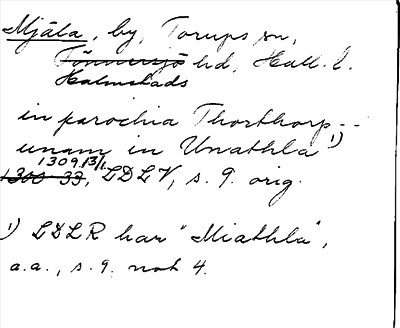 Mjäla, by, Torups sn,
Tönnersjö hd, Hall. l.
Halmstads
in parochia Thorthorp --
unam in Unathla 1)
1309 13/1
1300 33, LDLV, s. 9. orig.
1) LDLR har "Miathla",
a.a., s. 9. not 4.